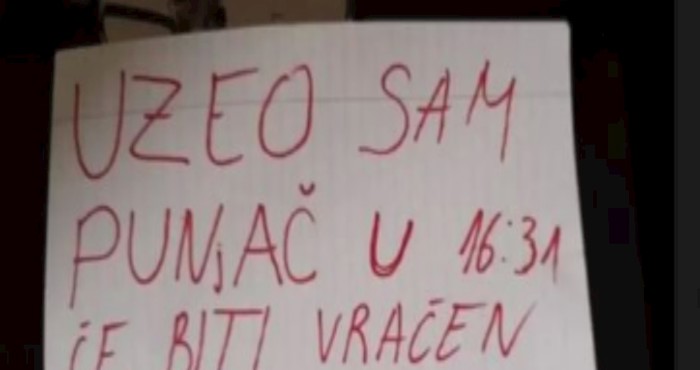 UZEO SAM
PUNjAČ U 16:31
ĆE BITI VRAĆEN